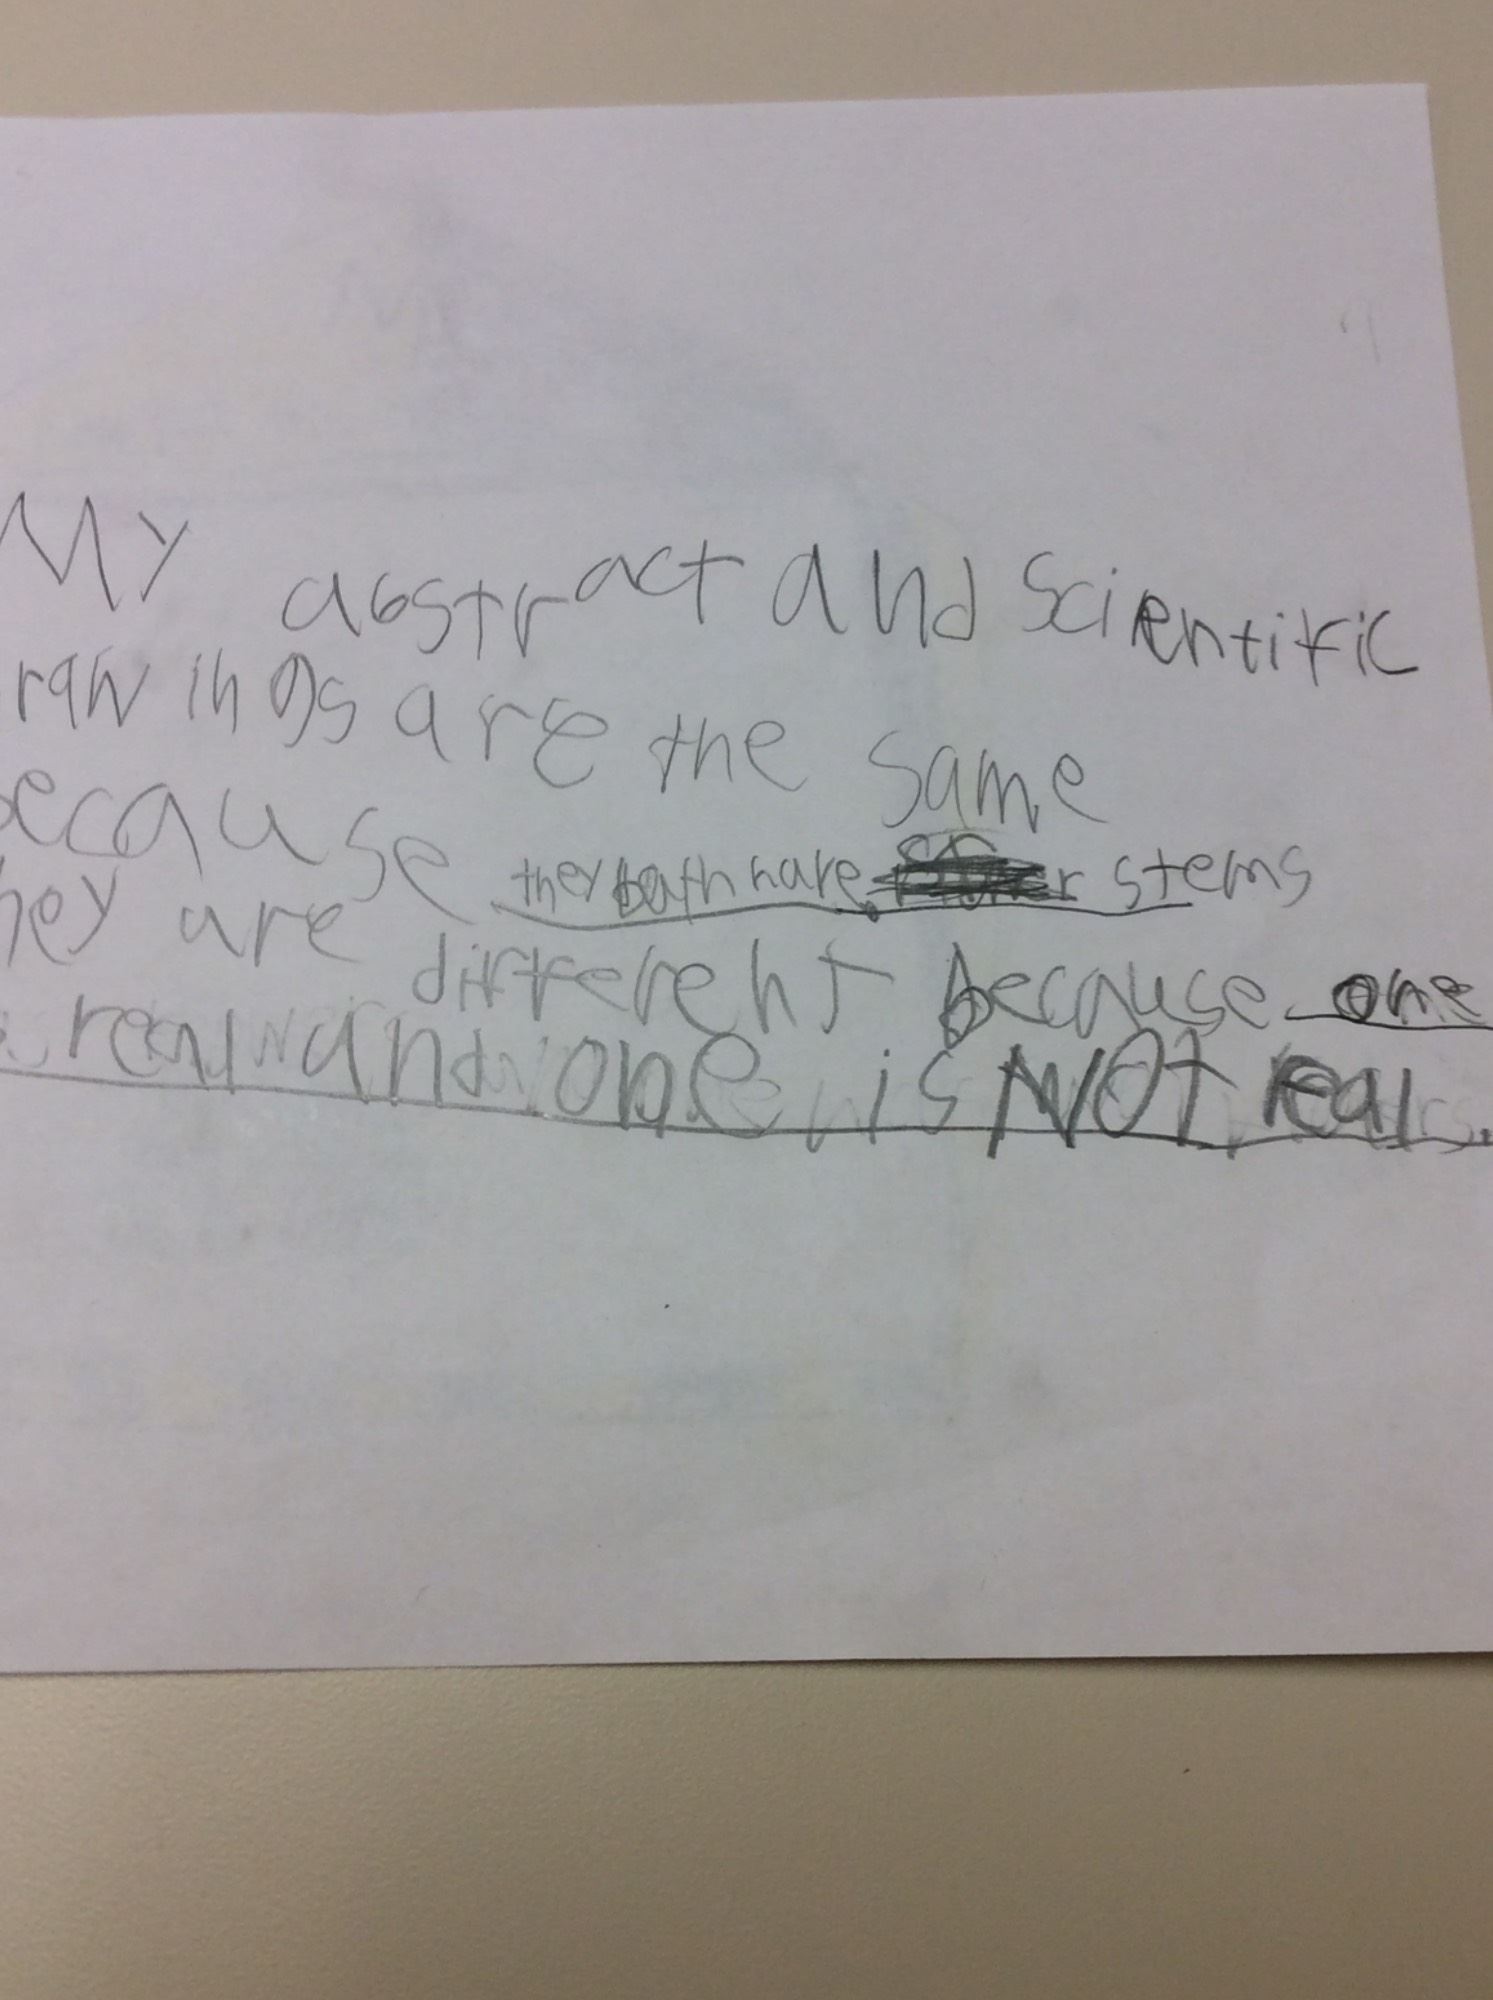 My abstract and scientific
rawings are the same
ecause they both have stems
hey are different because one
s real and one is NOT real.